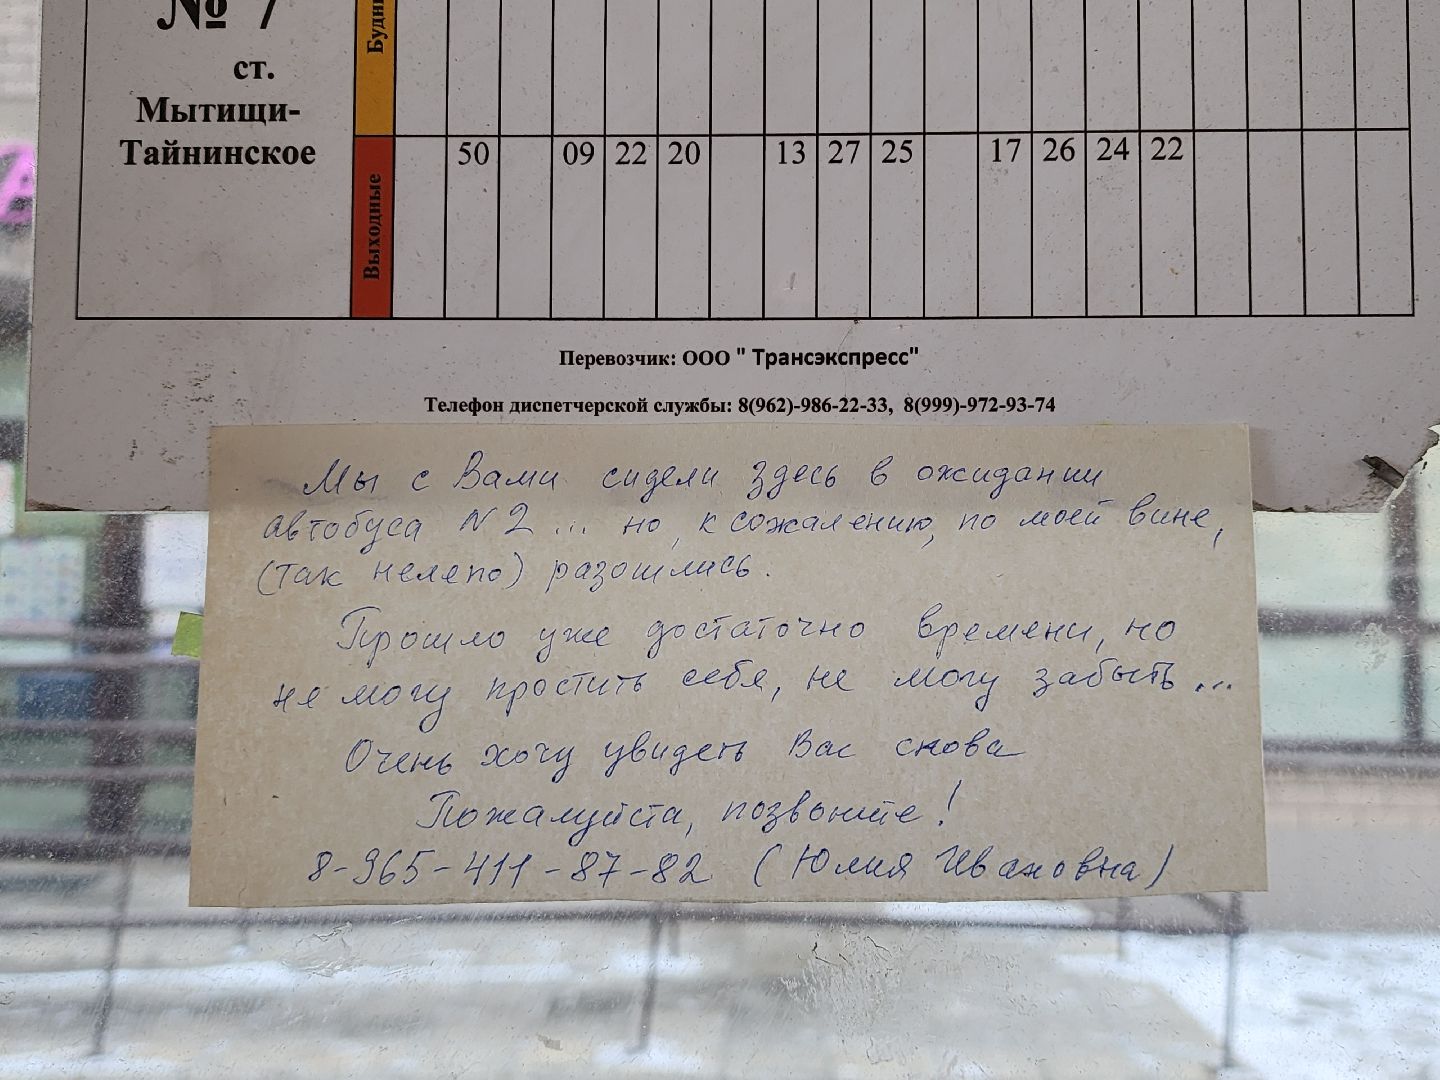 № 7
ст.
Мытищи-
Тайнинское
Выходные
50 09 22 20 13 27 25 17 26 24 22
Перевозчик: ООО " Трансэкспресс"
Телефон диспетчерской службы: 8(962)-986-22-33, 8(999)-972-93-74
Мы с Вами сидели здесь в ожидании
автобуса N 2 ... но, к сожалению, по моей вине,
(так нелепо) разошлись.
Прошло уже достаточно времени, но
не могу простить себя, не могу забыть...
Очень хочу увидеть Вас снова
Пожалуйста, позвоните!
8-965-411-87-82 (Юлия Ивановна)